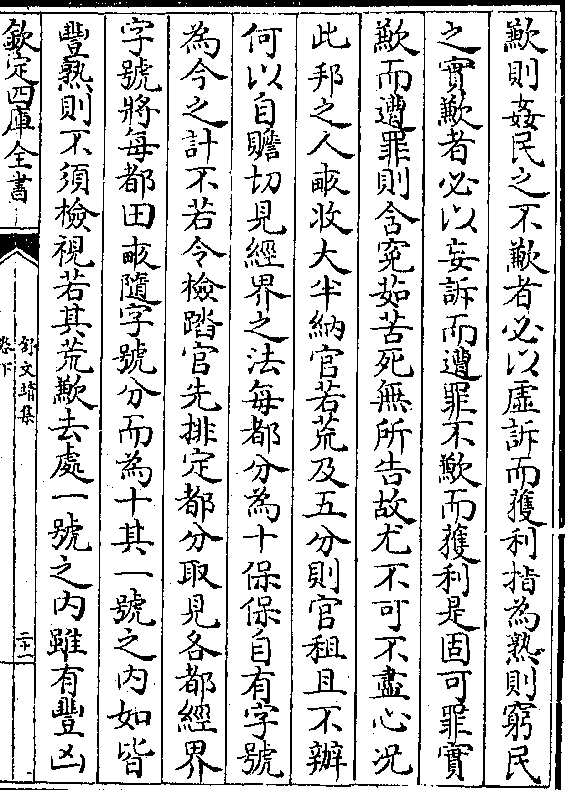 歉則姦民之不歉者必以虛訴而獲利指為熟則窮民
之實歉者必以妄訴而遭罪不歉而獲利是固可罪實
歉而遭罪則含寃茹苦死無所告故尤不可不盡心況
此邦之人畝收大半納官若荒及五分則官租且不辦
何以自贍切見經界之法每都分為十保保自有字號
為今之計不若令檢踏官先排定都分取見各都經界
字號將每都田畝隨字號分而為十其一號之内如皆
豐熟則不須檢視若其荒歉去處一號之内雖有豐凶
欽定四庫全書
舒文靖集
卷下
二十一